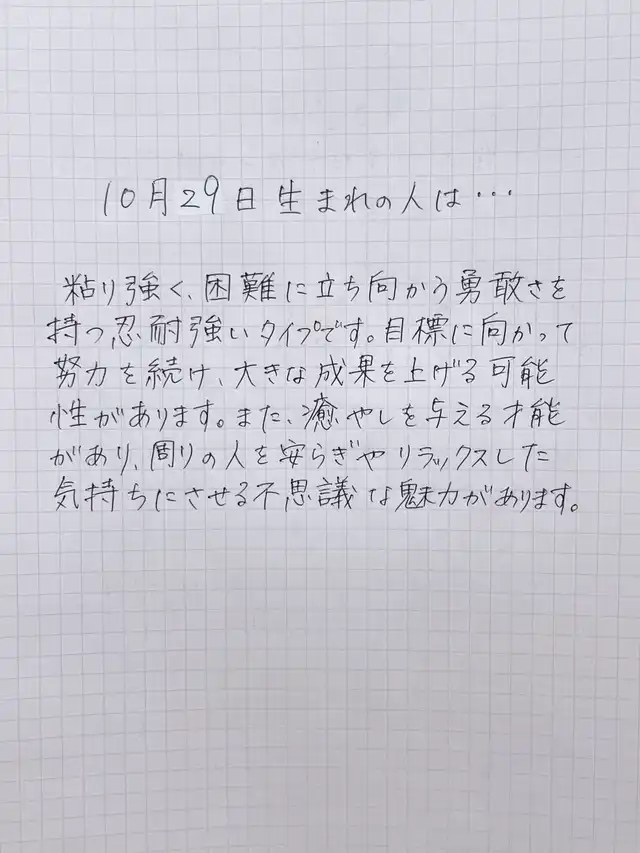 10月29日生まれの人は…
粘り強く、困難に立ち向かう勇敢さを
持つ忍耐強いタイプです。目標に向かって
努力を続け、大きな成果を上げる可能
性があります。また、癒やしを与える才能
があり、周りの人を安らぎやリラックスした
気持ちにさせる不思議な魅力があります。